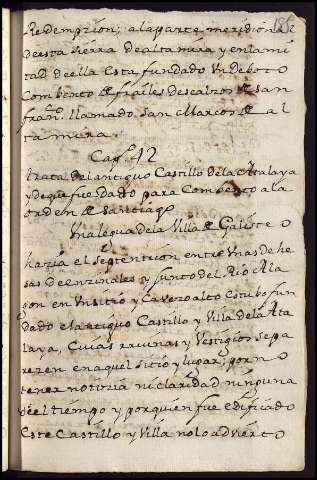 185
Redempzion; alaparte meridional
deesta sierra dealtamira y enlami
tad deella esta fundado Vn deboto
Combento de frailes descalzos de san
franco. llamado San Marcos de al
tamira.
Cap.º 42
trata del antiguo Castillo dela Atalaya
y de que fue Dado para Combento ala
orden de santiago
Vna legua dela Villa de Galiste o
hazia el septentrion entre Vnas dehe
sas de enzinales y junto del Rio Ala
gon en Vn sitio y Cavezo alto estubo fun
dado el antiguo Castillo y Villa dela Ata
laya, Cuias rruinas y Vestigios sepa
rezen en aquel sitio y lugar; por no
tener notizia ni claridad ninguna
de el tiempo y por quien fue edificado
este Castillo y Villa no lo advierto